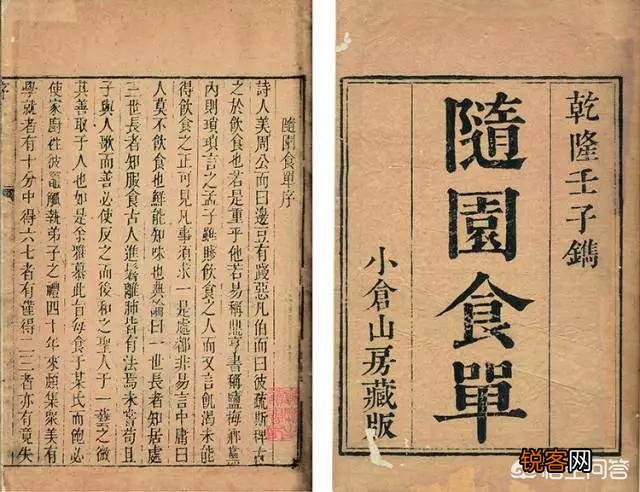 乾隆壬子鐫
隨園食單
小倉山房藏版
隨園食單序
詩人美周公而曰籩豆有踐惡凡伯而曰彼疏斯稗古
之於飲食也若是重乎他若易稱鼎亨書稱鹽梅鄉黨
內則瑣瑣言之孟子雖賤飲食之人而又言飢渴未能
得飲食之正可見凡事須求一是處都非易言中庸曰
人莫不飲食也鮮能知味也典論曰一世長者知居處
三世長者知服食古人進鬐離肺皆有法焉未嘗苟且
子與人歌而善必使反之而後和之聖人于一藝之微
其善取于人也如是余雅慕此旨每食于某氏而飽必
使家廚往彼竈觚執弟子之禮四十年來頗集眾美有
學就者有十分中得六七者有僅得二三者亦有竟失
锐客网
悟空问答